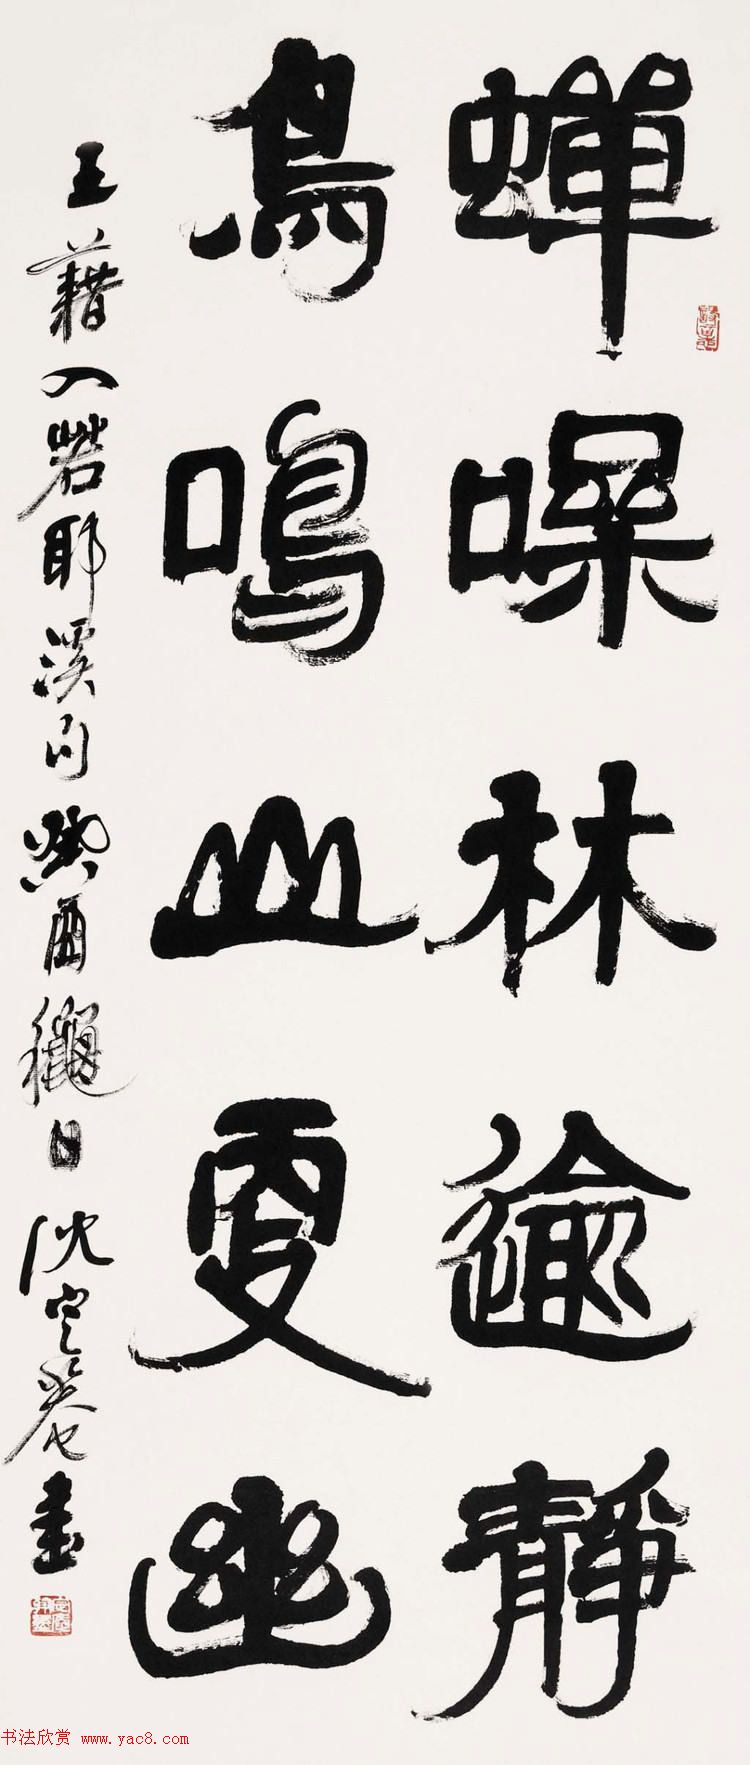 蟬噪林逾靜
鳥鳴山更幽
王藉入若耶溪句癸酉穐日沈定菴書
书法欣赏 www.yac8.com